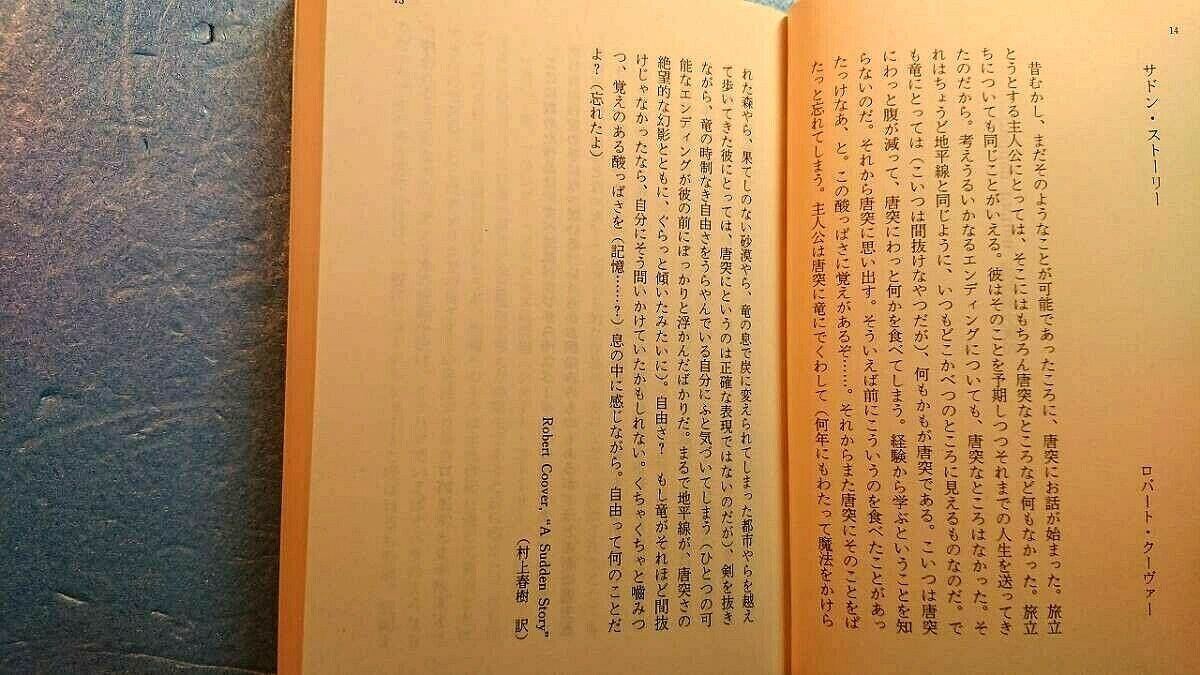 14
サドン・ストーリー
ロバート・クーヴァー
昔むかし、まだそのようなことが可能であったころに、唐突にお話が始まった。旅立
とうとする主人公にとっては、そこにはもちろん唐突なところなど何もなかった。旅立
ちについても同じことがいえる。彼はそのことを予期しつつそれまでの人生を送ってき
たのだから。考えうるいかなるエンディングについても、唐突なところはなかった。そ
れはちょうど地平線と同じように、いつもどこかべつのところに見えるものなのだ。で
も竜にとっては（こいつは間抜けなやつだが）、何もかもが唐突である。こいつは唐突
にわっと腹が減って、唐突にわっと何かを食べてしまう。経験から学ぶということを知
らないのだ。それから唐突に思い出す。そういえば前にこういうのを食べたことがあっ
たっけなあ、と。この酸っぱさに覚えがあるぞ……。それからまた唐突にそのことをぱ
たっと忘れてしまう。主人公は唐突に竜にでくわして（何年にもわたって魔法をかけら
れた森やら、果てしのない砂漠やら、竜の息で炭に変えられてしまった都市やらを越え
て歩いてきた彼にとっては、唐突にというのは正確な表現ではないのだが）、剣を抜き
ながら、竜の時制なき自由さをうらやんでいる自分にふと気づいてしまう（ひとつの可
能なエンディングが彼の前にぽっかりと浮かんだばかりだ。まるで地平線が、唐突さの
絶望的な幻影とともに、ぐらっと傾いたみたいに）。自由さ？　もし竜がそれほど間抜
けじゃなかったなら、自分にそう問いかけていたかもしれない。くちゃくちゃと嚙みつ
つ、覚えのある酸っぱさを（記憶……？）息の中に感じながら。自由って何のことだ
よ？（忘れたよ）
Robert Coover, "A Sudden Story"
（村上春樹　訳）